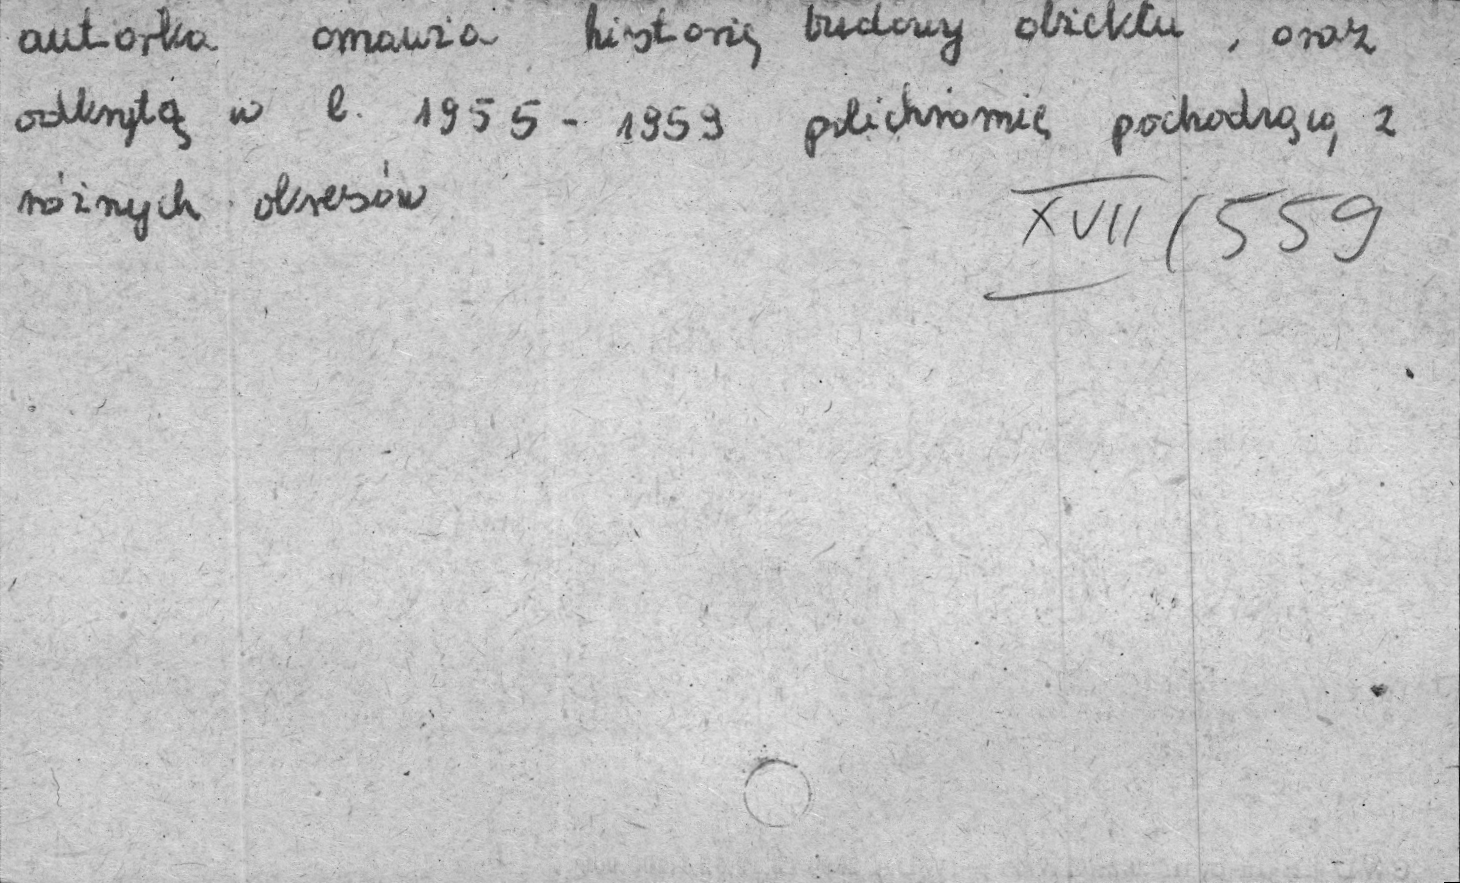 autorka omawia historię budowy obiektu, oraz
odkrytą w l. 1955-1959 polichromię pochodzącą z
różnych okresów
XVII/559